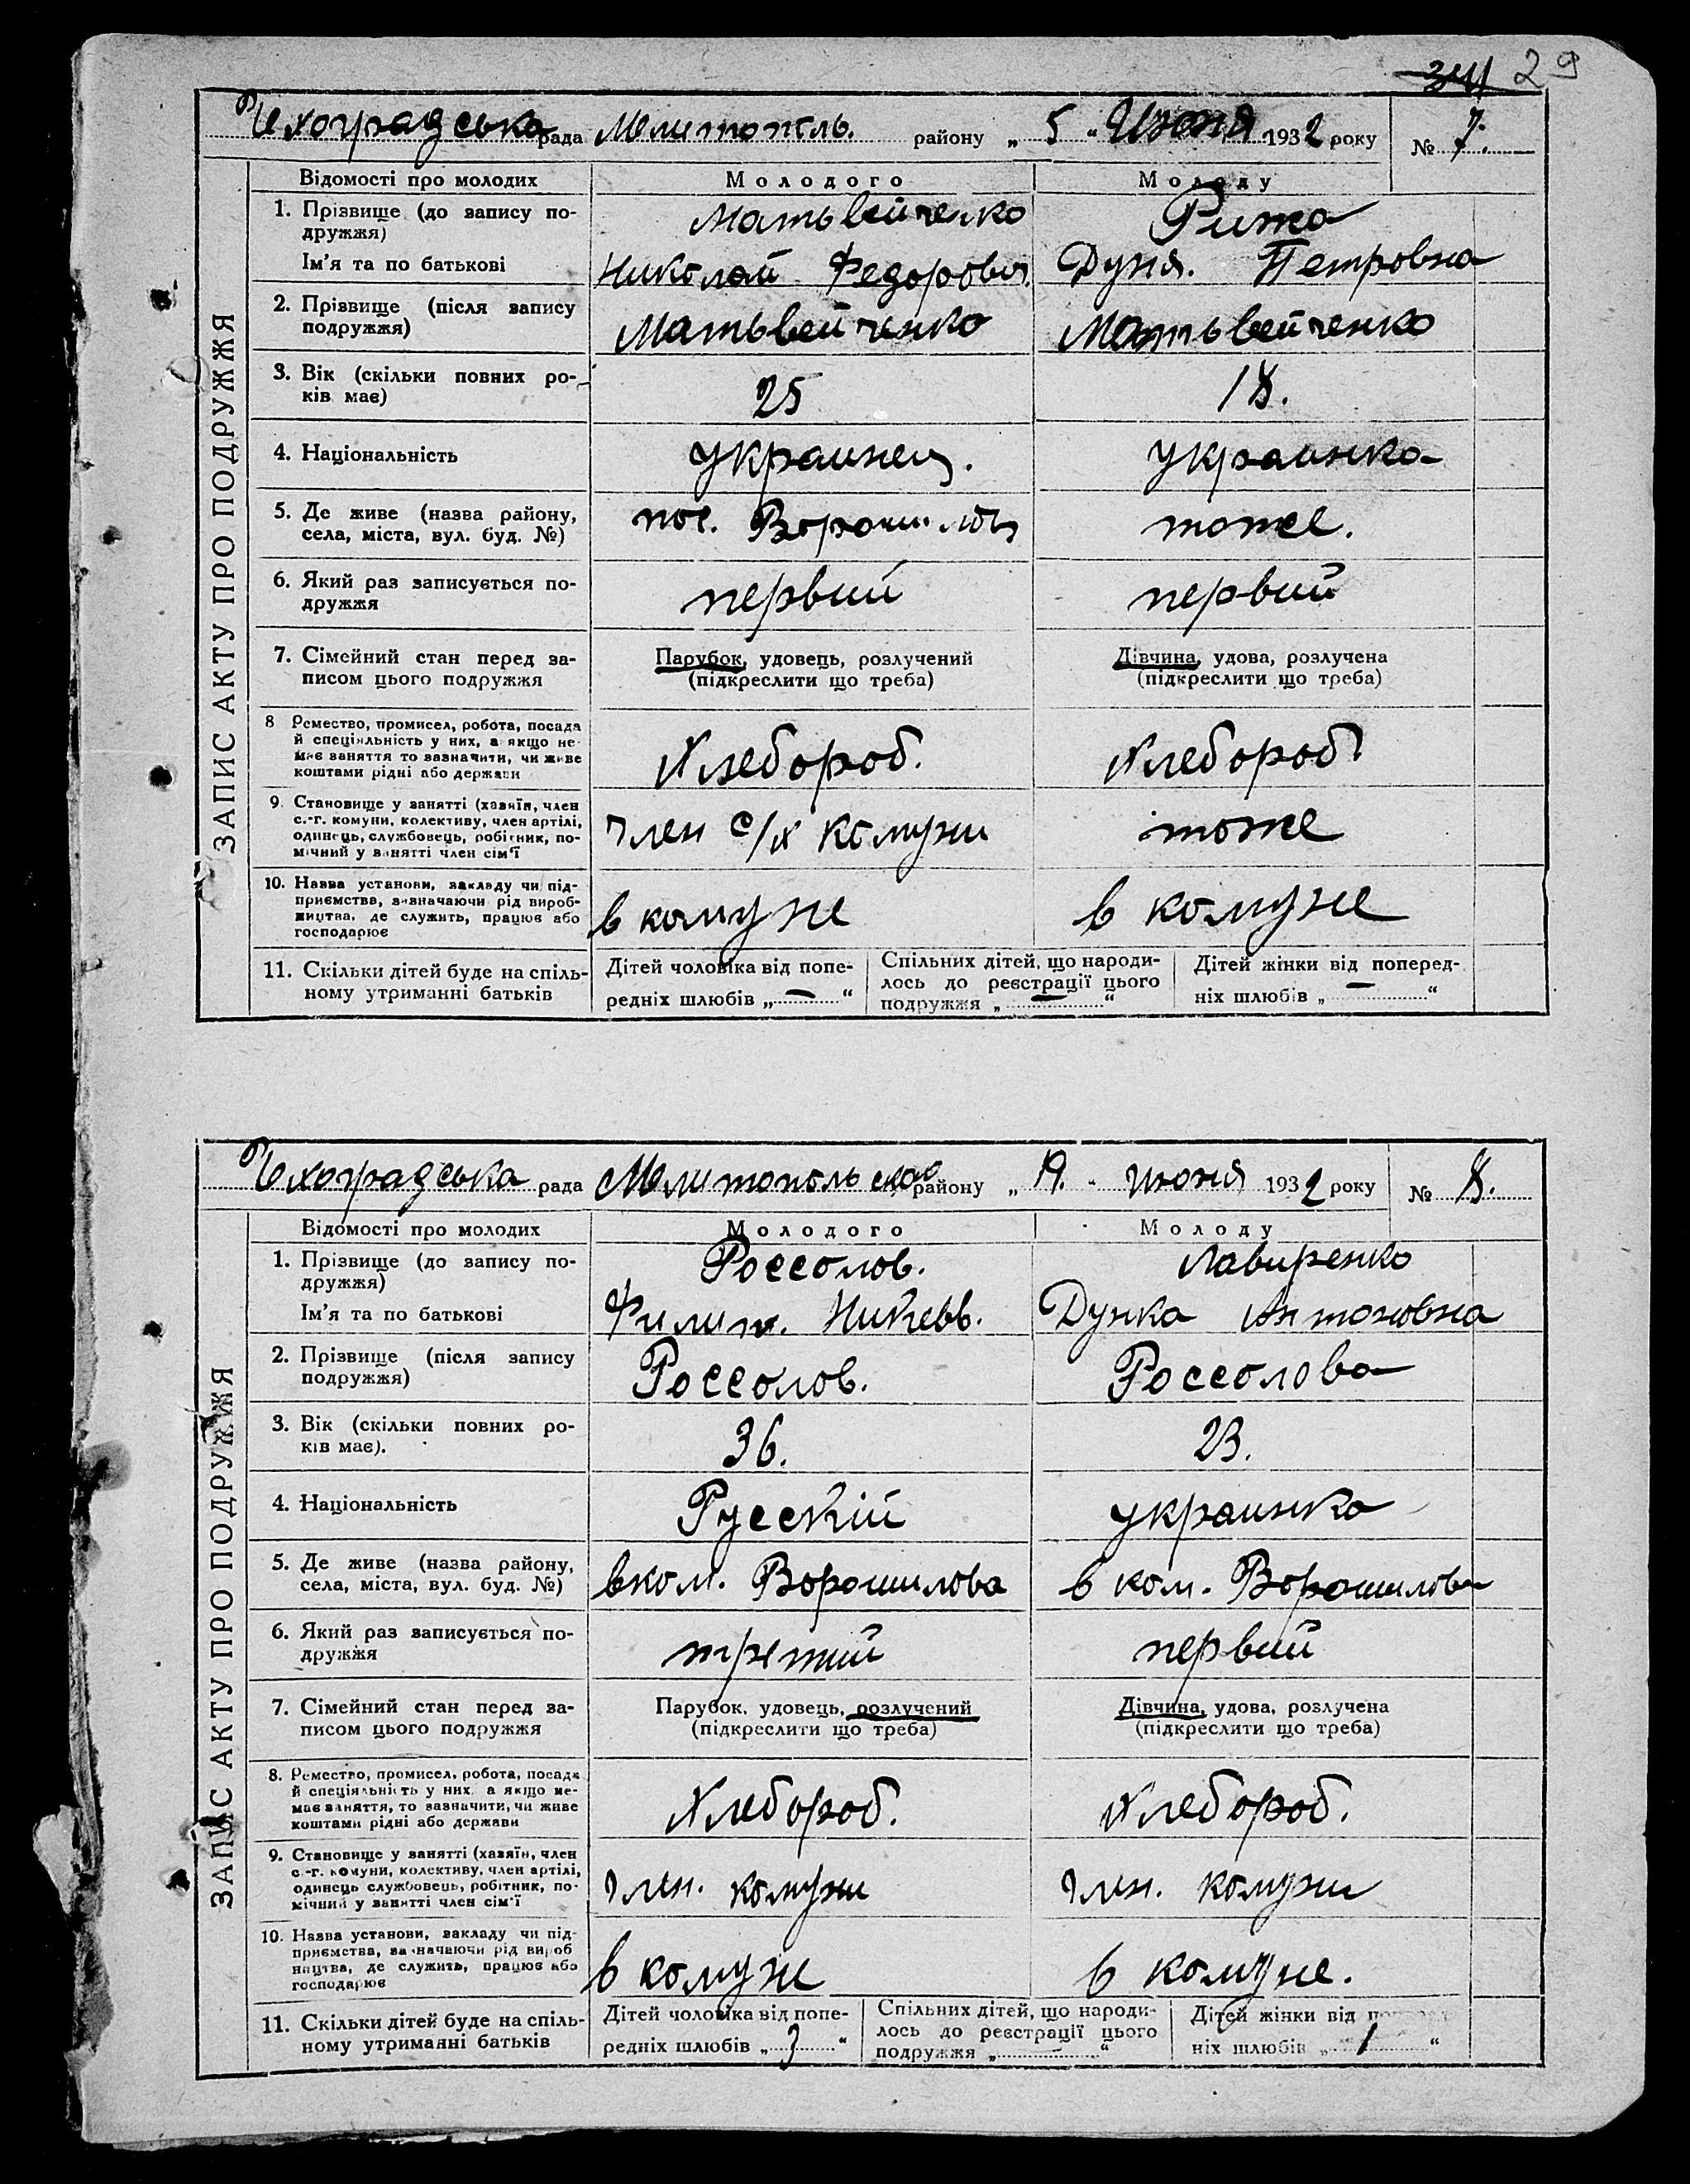 34 29
Чехоградська рада Мелитополь. району „ 5 “ Июня 1932 року № 7.
ЗАПИС АКТУ ПРО ПОДРУЖЖЯ
Відомості про молодих Молодого Молоду
1. Прізвище (до запису по- Матьвейченко Рижа
дружжя)
Ім'я та по батькові Николай Федоров. Дуня. Петровна
2. Прізвище (після запису
подружжя) Матьвейченко Матьвейченко
3. Вік (скільки повних ро-
ків має) 25 18.
4. Національність украинец. украинка
5. Де живе (назва району, пос. Ворошилов тоже.
села, міста, вул. буд. №)
6. Який раз записується по- первий первий
дружжя
7. Сімейний стан перед за- Парубок, удовець, розлучений Дівчина, удова, розлучена
писом цього подружжя (підкреслити що треба) (підкреслити що треба)
8 Ремество, промисел, робота, посада
й спеціяльність у них, а якщо не
має заняття то зазначити, чи живе Хлебороб. Хлебороб
коштами рідні або держави
9. Становище у занятті (хазяїн, член
с.-г. комуни, колективу, член артілі, член с/х комуни тоже
одинець, службовець, робітник, по-
мічний у занятті член сім'ї
10. Назва установи, закладу чи під-
приємства, зазначаючи рід вироб- в комуне в комуне
ництва, де служить, працює або
господарює
11. Скільки дітей буде на спіль- Дітей чоловіка від попе- Спільних дітей, що народи- Дітей жінки від поперед-
ному утриманні батьків редніх шлюбів „ — “ лось до реєстрації цього ніх шлюбів „ — “
подружжя „ — “
Чехоградська рада Мелитопольское району „ 19. “ июня 1932 року № 8.
ЗАПИС АКТУ ПРО ПОДРУЖЖЯ
Відомості про молодих Молодого Молоду
1. Прізвище (до запису по- Россолов. Лавиренко
дружжя)
Ім'я та по батькові Филип. Дунка Антоновна
2. Прізвище (після запису
подружжя) Россолов. Россолова
3. Вік (скільки повних ро-
ків має). 36. 23.
4. Національність Русскій украинка
5. Де живе (назва району, в ком. Ворошилова в ком. Ворошилова
села, міста, вул. буд. №)
6. Який раз записується по- третий первий
дружжя
7. Сімейний стан перед за- Парубок, удовець, розлучений Дівчина, удова, розлучена
писом цього подружжя (підкреслити що треба) (підкреслити що треба)
8. Ремество, промисел, робота, посада
й спеціяльність у них, а якщо не-
має заняття, то зазначити, чи живе Хлебороб. Хлебороб.
коштами рідні або держави
9. Становище у занятті (хазяїн, член
с.-г. комуни, колективу, член артілі, член. комуни член. комуни
одинець службовець, робітник, по-
мічний у занятті член сім'ї
10. Назва установи, закладу чи під-
приємства, зазначаючи рід вироб
ництва, де служить, працює або в комуне в комуне.
господарює
11. Скільки дітей буде на спіль- Дітей чоловіка від попе- Спільних дітей, що народи- Дітей жінки від
ному утриманні батьків редніх шлюбів „ 3 “ лось до реєстрації цього ніх шлюбів „ 1 “
подружжя „ “